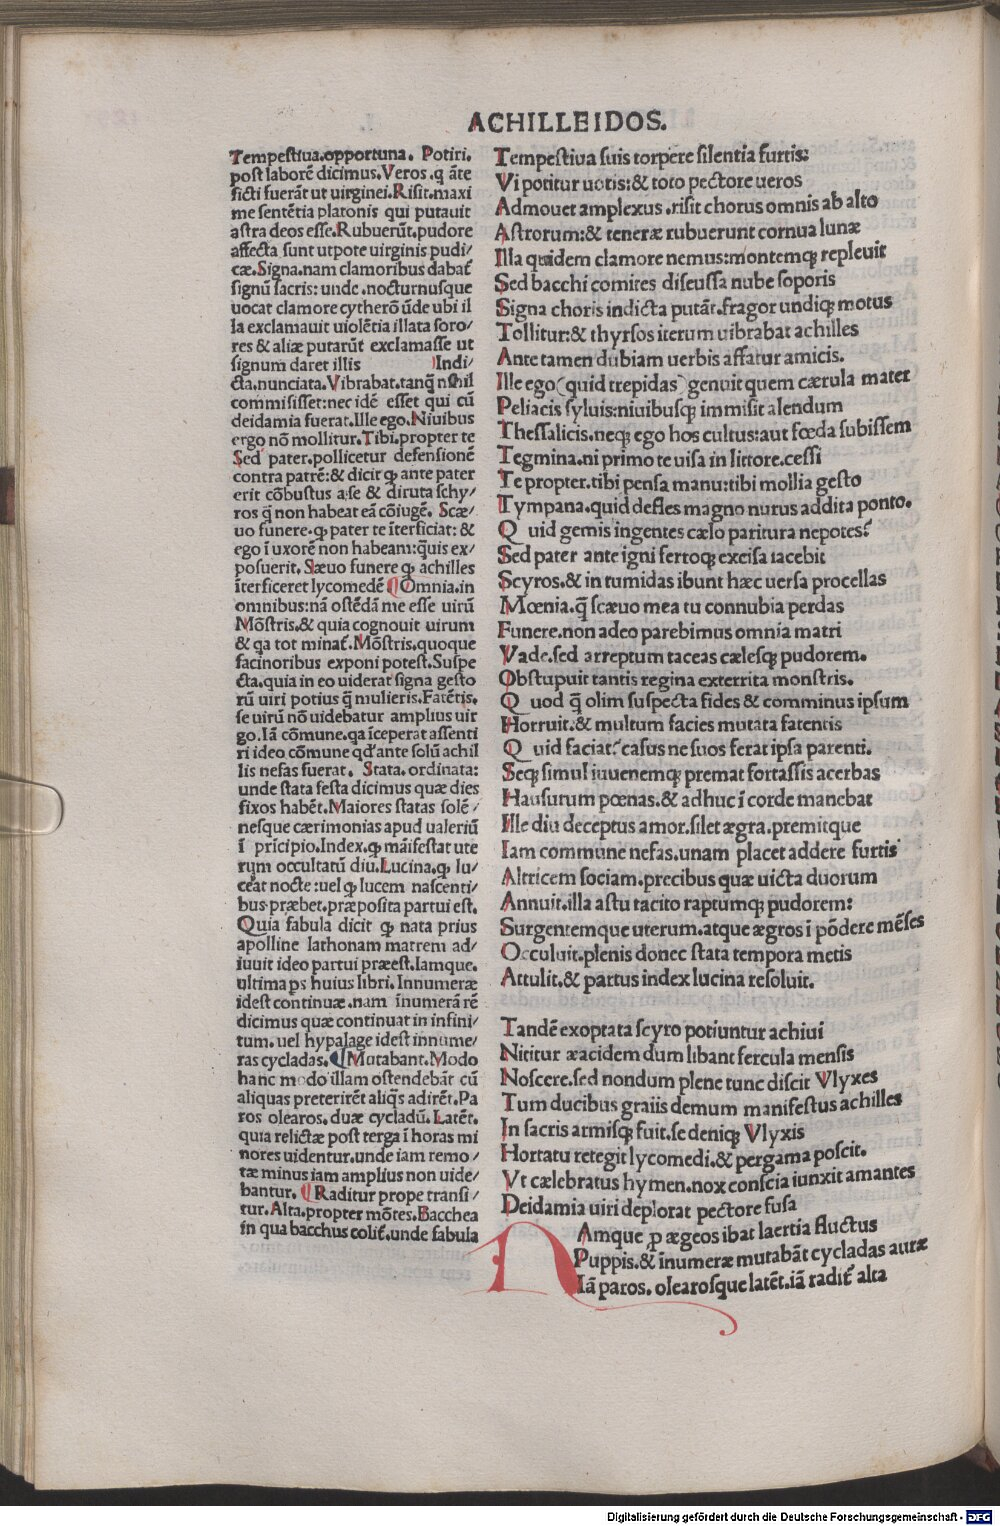 ACHILLEIDOS.
Tempestiua.opportuna. Potiri.
post laborē dicimus.Veros.q āte
ficti fuerāt ut uirginei.Risit.maxi
me sentētia platonis qui putauit
astra deos esse.Rubuerūt.pudore
affecta sunt utpote uirginis pudi/
cæ.Signa.nam clamoribus dabat̄
signū sacris: unde .nocturnusque
uocat clamore cytherō ūde ubi il
la exclamauit uiolētia illata soro/
res & aliæ putarūt exclamasse ut
signum daret illis Indi/
cta.nunciata.Vibrabat.tanq̄ nihil
commisisset:nec idē esset qui cū
deidamia fuerat.Ille ego.Niuibus
ergo nō mollitur.Tibi.propter te
Sed pater.pollicetur defensionē
contra patrē:& dicit ꝙ ante pater
erit cōbustus a se & diruta schy/
ros q̄ non habeat eā cōiugē. Scæ/
uo funere.ꝙ pater te īterficiat: &
ego ī uxorē non habeam:q̄uis ex/
posuerit. Sæuo funere ꝙ achilles
īterficeret lycomedē ¶ Omnia.in
omnibus:nā ostēdā me esse uirū
Mōstris.& quia cognouit uirum
& qa tot minat̄. Mōstris.quoque
facinoribus exponi potest.Suspe
cta.quia in eo uiderat signa gesto
rū uiri potius q̄ mulieris.Fatētis.
se uirū nō uidebatur amplius uir
go.Iā cōmune.qa īceperat assenti
ri ideo cōmune qđ ante solū achil
lis nefas fuerat. Stata.ordinata:
unde stata festa dicimus quæ dies
fixos habēt.Maiores statas solē/
nesque cærimonias apud ualeriū
ī pricipio.Index.ꝙ māifestat ute
rum occultatū diu.Lucina.ꝙ lu/
ceat nocte:uel ꝙ lucem nascenti/
bus præbet.præposita partui est.
Quia fabula dicit ꝙ nata prius
apolline lathonam matrem ad/
iuuit ideo partui præest.Iamque.
ultima ps huius libri.Innumeræ
idest continuæ.nam īnumerā rē
dicimus quæ continuat in infini/
tum.uel hypalage idest innume/
ras cycladas.¶Mutabant.Modo
hanc modo illam ostendebāt cū
aliquas preterirēt aliq̄s adirēt.Pa
ros olearos.duæ cycladū.Latēt.
quia relictæ post terga ī horas mi
nores uidentur.unde iam remo/
tæ minus iam amplius non uide/
bantur. ¶ Raditur prope transi/
tur.Alta.propter mōtes.Bacchea
in qua bacchus colit̄.unde fabula
Tempestiua suis torpere silentia furtis:
Vi potitur uotis:& toto pectore ueros
Admouet amplexus.risit chorus omnis ab alto
Astrorum:& teneræ rubuerunt cornua lunæ
Illa quidem clamore nemus:montemq; repleuit
Sed bacchi comites discussa nube soporis
Signa choris indicta putāt.fragor undiq; motus
Tollitur:& thyrsos iterum uibrabat achilles
Ante tamen dubiam uerbis affatur amicis.
Ille ego(quid trepidas)genuit quem cærula mater
Peliacis syluis:niuibusq; immisit alendum
Thessalicis.neq; ego hos cultus:aut fœda subissem
Tegmina.ni primo te uisa in littore.cessi
Te propter.tibi pensa manu:tibi mollia gesto
Tympana.quid defles magno nurus addita ponto.
Quid gemis ingentes cælo paritura nepotes?
Sed pater ante igni ferroq; excisa iacebit
Scyros.& in tumidas ibunt hæc uersa procellas
Mœnia.q̄ scæuo mea tu connubia perdas
Funere.non adeo parebimus omnia matri
Vade.sed arreptum taceas cælesq; pudorem.
Obstupuit tantis regina exterrita monstris.
Quod q̄ olim suspecta fides & comminus ipsum
Horruit.& multum facies mutata fatentis
Quid faciat?casus ne suos ferat ipsa parenti.
Seq; simul iuuenemq; premat fortassis acerbas
Hausurum pœnas.& adhuc ī corde manebat
Ille diu deceptus amor.silet ægra.premitque
Iam commune nefas.unam placet addere furtis
Altricem sociam.precibus quæ uicta duorum
Annuit.illa astu tacito raptumq; pudorem:
Surgentemque uterum.atque ægros ī pōdere mēses
Occuluit.plenis donec stata tempora metis
Attulit.& partus index lucina resoluit.
Tandē exoptata scyro potiuntur achiui
Nititur æacidem dum libant fercula mensis
Noscere.sed nondum plene tunc discit Vlyxes
Tum ducibus graiis demum manifestus achilles
In sacris armisq; fuit.se deniq; Vlyxis
Hortatu retegit lycomedi.& pergama poscit.
Vt cælebratus hymen.nox conscia iunxit amantes
Deidamia uiri deplorat pectore fusa
NAmque ꝑ ægeos ibat laertia fluctus
Puppis.& īnumeræ mutabāt cycladas auræ
Iā paros. olearosque latēt.iā radit̄ alta
Digitalisierung gefördert durch die Deutsche Forschungsgemeinschaft - DFG